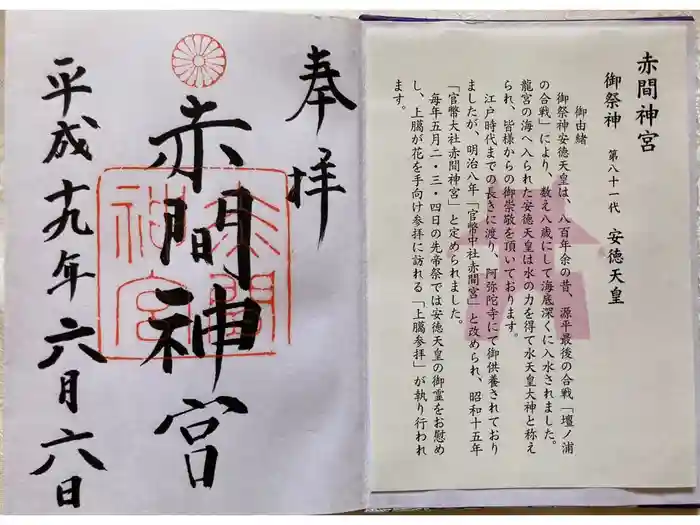 赤間神宮
御祭神　第八十一代　安徳天皇
御由緒
御祭神安徳天皇は、八百年余の昔、源平最後の合戦「壇ノ浦
の合戦」により、数え八歳にして海底深くに入水されました。
龍宮の海へ入られた安徳天皇は水の力を得て水天皇大神と称え
られ、皆様からの御崇敬を頂いております。
江戸時代までの長きに渡り、阿弥陀寺にて御供養されており
ましたが、明治八年「官幣中社赤間宮」と改められ、昭和十五年
「官幣大社赤間神宮」と定められました。
毎年五月二・三・四日の先帝祭では安徳天皇の御霊をお慰め
し、上臈が花を手向け参拝に訪れる「上臈参拝」が執り行われ
ます。
奉拝
赤間神宮
赤間
神宮
平成十九年六月六日